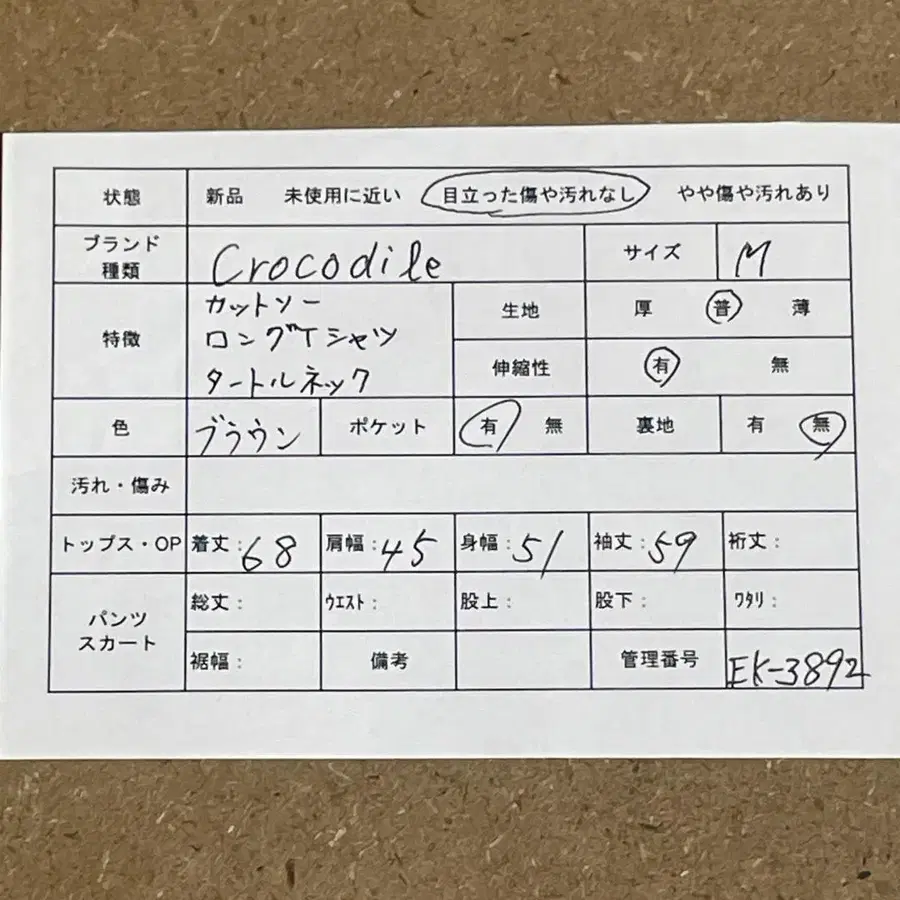 状態 新品 未使用に近い 目立った傷や汚れなし やや傷や汚れあり
ブランド
種類 Crocodile サイズ M
特徴 カットソー
ロングTシャツ
タートルネック
生地 厚 普 薄
伸縮性 有 無
色 ブラウン ポケット 有 無 裏地 有 無
汚れ・傷み
トップス・OP 着丈:68 肩幅:45 身幅:51 袖丈:59 裄丈:
パンツ
スカート
総丈: ウエスト: 股上: 股下: ワタリ:
裾幅: 備考 管理番号 EK-3892